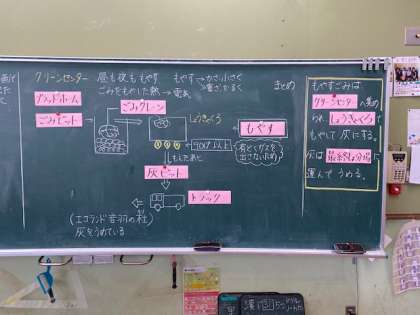 クリーンセンター
昼も夜ももやす
もやす→かさ小さく
ごみをもやした熱→電気
重さかるく
プラットホーム
ごみクレーン
ごみピット
しょうきゃくろ
もやす
900℃以上
有どくガスを
出さないため
もえたあと
灰ピット
トラック
(エコランド音羽の杜)
灰をうめている
まとめ
もやすごみは
クリーンセンターへ集め
られ、しょうきゃくろで
もやして灰にする。
灰は最終しょ分場に
運んでうめる。